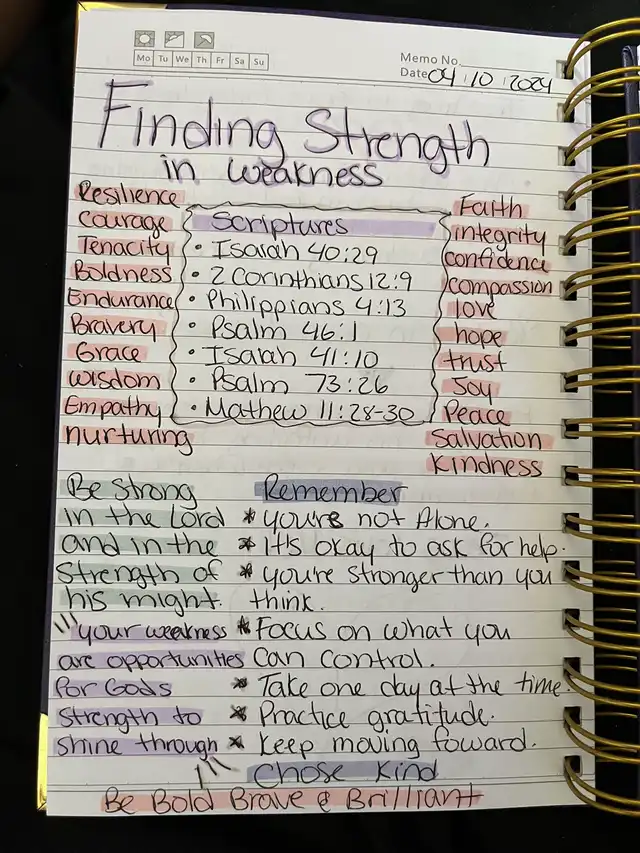 Mo Tu We Th Fr Sa Su
Memo No.
Date 04 / 10 / 2024
Finding Strength
in weakness
Resilience
Courage
Tenacity
Boldness
Endurance
Bravery
Grace
Wisdom
Empathy
nurturing
Scriptures
• Isaiah 40:29
• 2 Corinthians 12:9
• Philippians 4:13
• Psalm 46:1
• Isaiah 41:10
• Psalm 73:26
• Mathew 11:28-30
Faith
integrity
confidence
compassion
love
hope
trust
Joy
Peace
Salvation
Kindness
Be Strong
in the Lord
and in the
Strength of
his might.
your weakness
are opportunities
for Gods
Strength to
shine through
Remember
* you're not Alone.
* It's okay to ask for help.
* you're stronger than you
think.
* Focus on what you
can control.
* Take one day at the time.
* Practice gratitude.
* Keep moving foward.
Chose Kind
Be Bold Brave & Brilliant